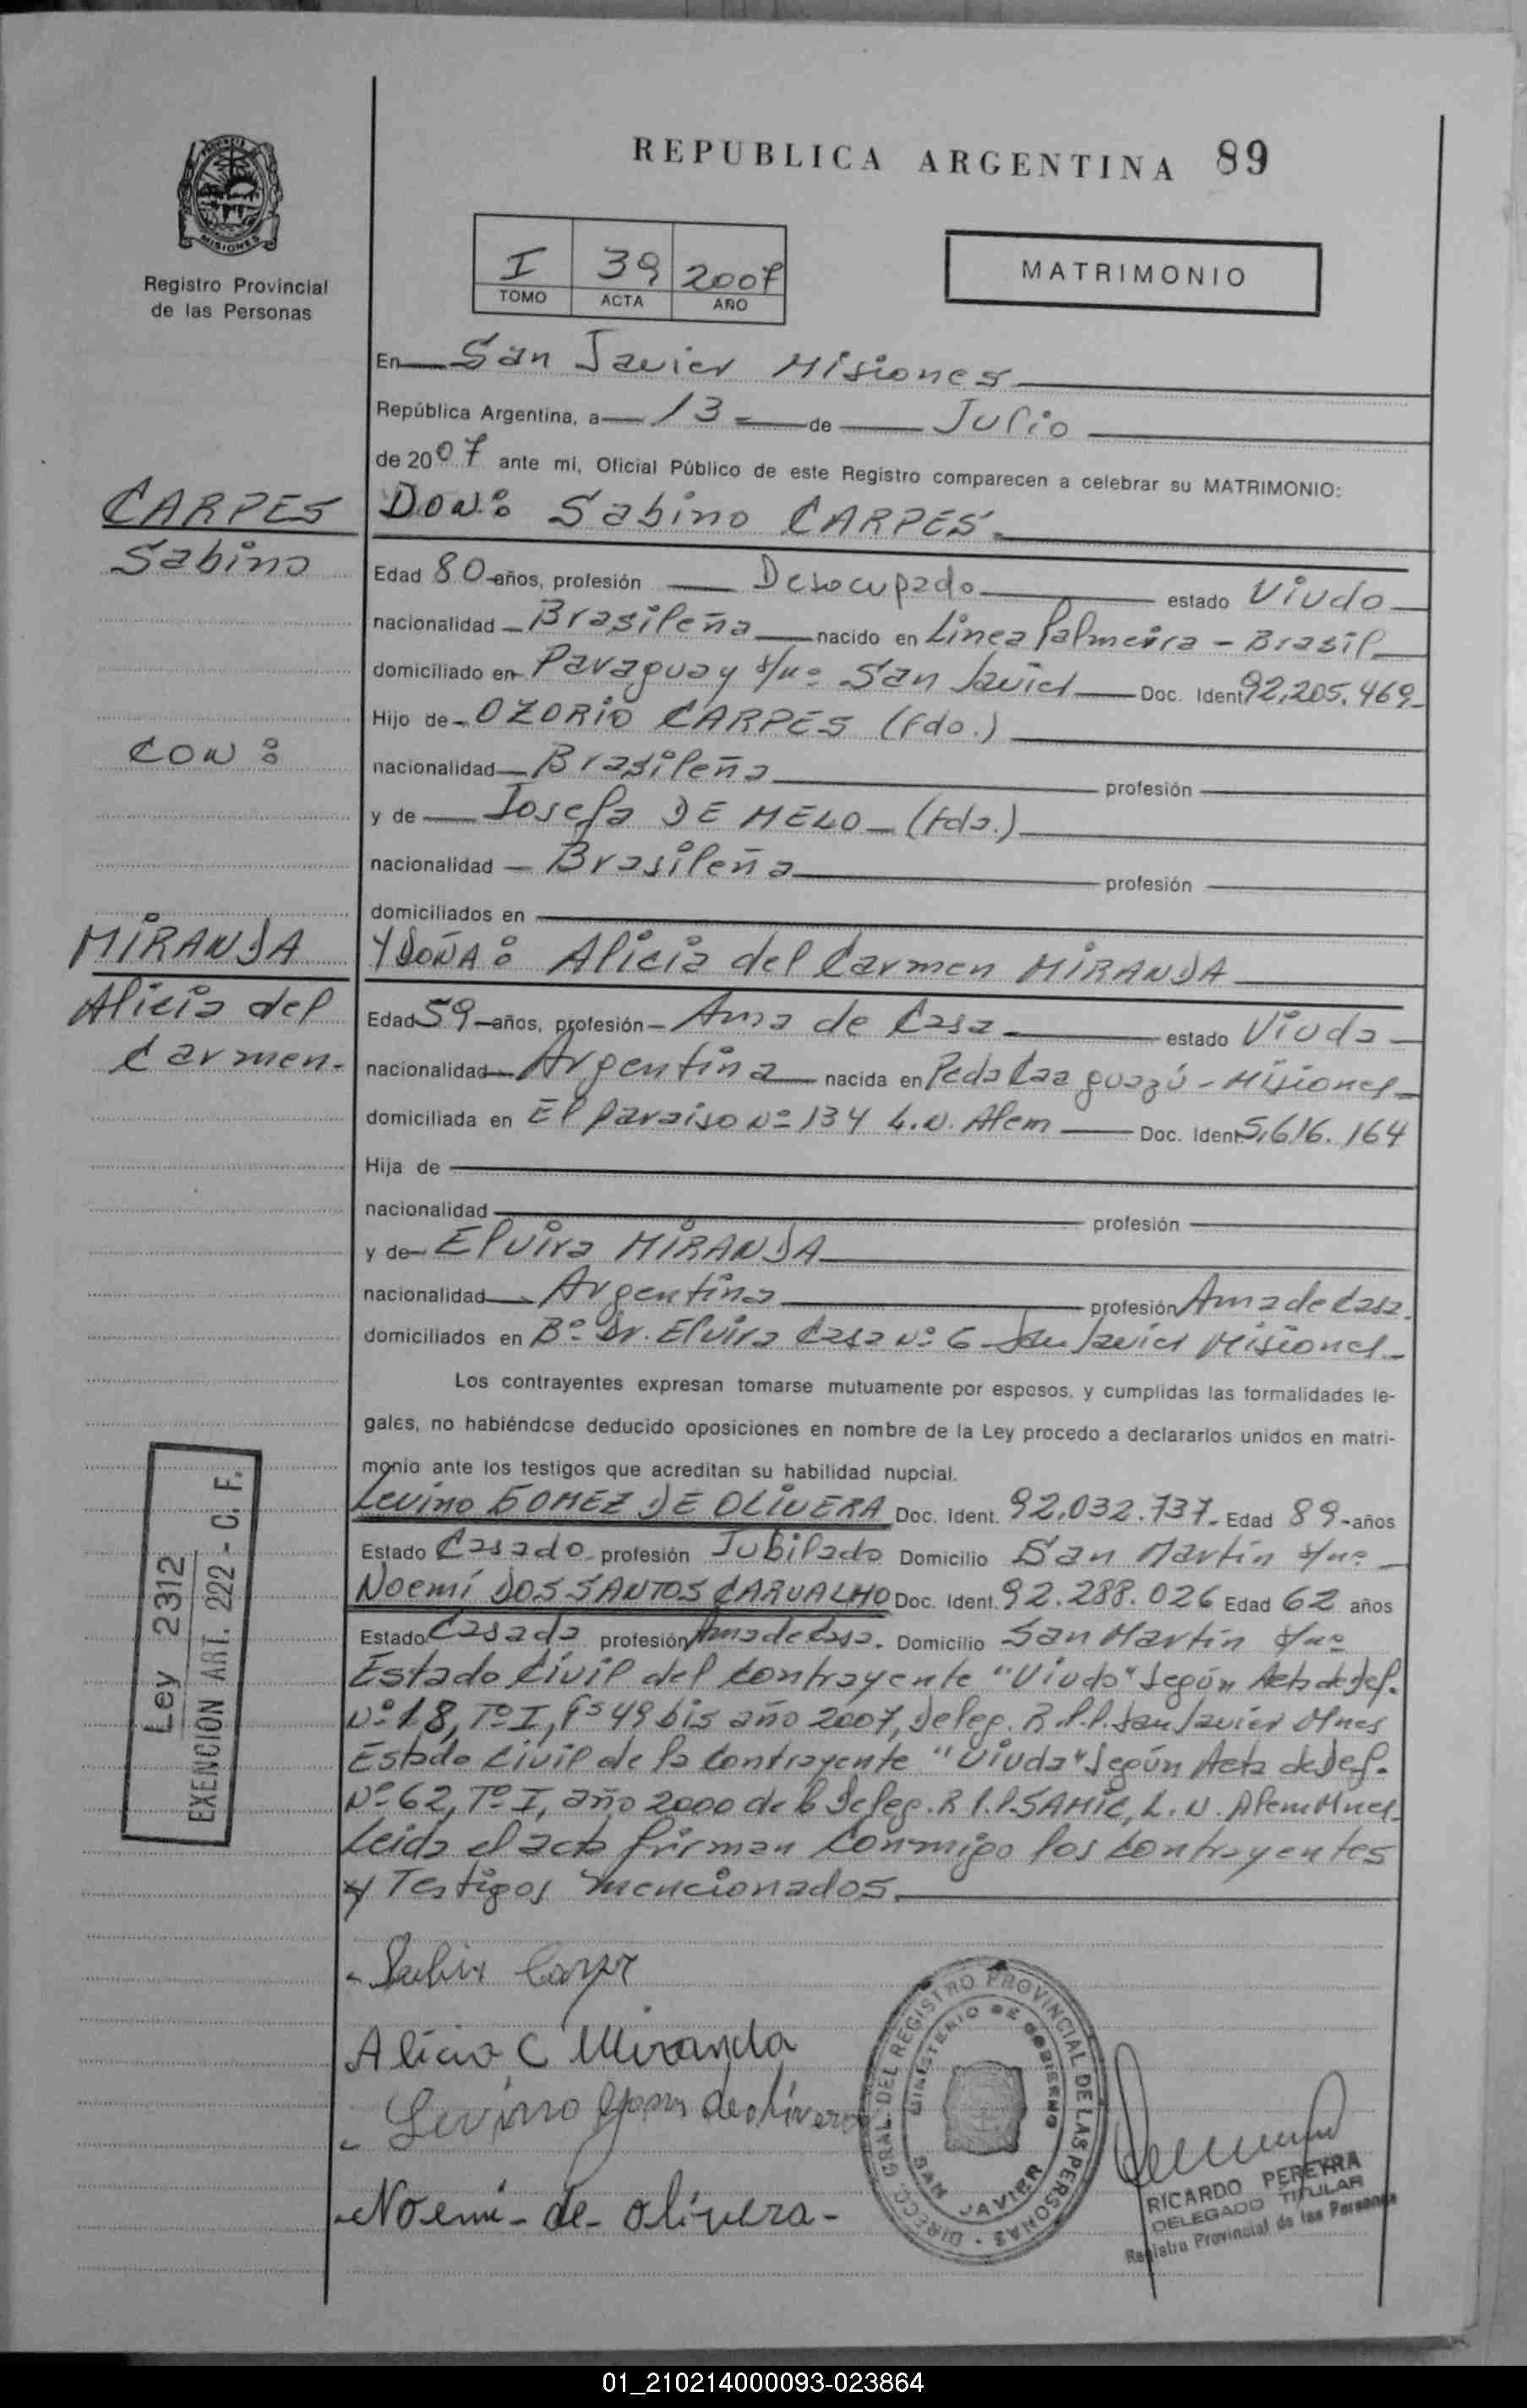 REPUBLICA ARGENTINA 89
PROVINCIA DE
MISIONES
Registro Provincial
de las Personas
I 39 2007
TOMO ACTA AÑO
MATRIMONIO
En San Javier Misiones
República Argentina, a 13 de Julio
de 2007 ante mi, Oficial Público de este Registro comparecen a celebrar su MATRIMONIO:
CARPES
Sabino
CON:
MIRANDA
Alicia del
Carmen.
DON: Sabino CARPES.
Edad 80 años, profesión Desocupado estado Viudo
nacionalidad Brasileña nacido en Linea Palmeira - Brasil
domiciliado en Paraguay s/nº San Javier Doc. Ident 92,205.469
Hijo de OZORIO CARPES (fdo.)
nacionalidad Brasileña profesión
y de Josefa DE MELO (fda.)
nacionalidad Brasileña profesión
domiciliados en
Y DOÑA: Alicia del Carmen MIRANDA
Edad 59 años, profesión Ama de Casa estado Viuda
nacionalidad Argentina nacida en Pcda Caa guazú - Misiones
domiciliada en El paraiso Nº 134 L.N. Alem Doc. Ident 5,616.164
Hija de
nacionalidad profesión
y de Elvira MIRANDA
nacionalidad Argentina profesión Ama de Casa.
domiciliados en Bº Dr. Elvira Casa Nº 6 San Javier Misiones
Los contrayentes expresan tomarse mutuamente por esposos, y cumplidas las formalidades le-
gales, no habiéndose deducido oposiciones en nombre de la Ley procedo a declararlos unidos en matri-
monio ante los testigos que acreditan su habilidad nupcial.
Levino GOMEZ DE OLIVERA Doc. Ident. 92,032.737 Edad 89 años
Estado Casado profesión Jubilado Domicilio San Martín s/nº
Noemí DOS SANTOS CARVALHO Doc. Ident. 92.288.026 Edad 62 años
Estado Casada profesión Ama de Casa. Domicilio San Martín s/nº
Estado Civil del contrayente "Viudo" según Acta de Def.
Nº 18, Tº I, Fs 49 bis año 2007, Deleg. R.P.P. San Javier Mnes
Estado Civil de la contrayente "Viuda" según Acta de Def.
Nº 62, Tº I, año 2000 de la Deleg. R.P.P. SAMIC, L.N. Alem Mnes.
Leida el acta firman conmigo los contrayentes
y Testigos mencionados.
Ley 2312
EXENCION ART. 222 - C. F.
Alicia C Miranda
Levino Gomes de olivera
Noemi de olivera
DIRECC. GRAL. DEL REGISTRO PROVINCIAL DE LAS PERSONAS
MINISTERIO DE GOBIERNO
SAN JAVIER
RICARDO PEREYRA
DELEGADO TITULAR
Registro Provincial de las Personas
01_210214000093-023864